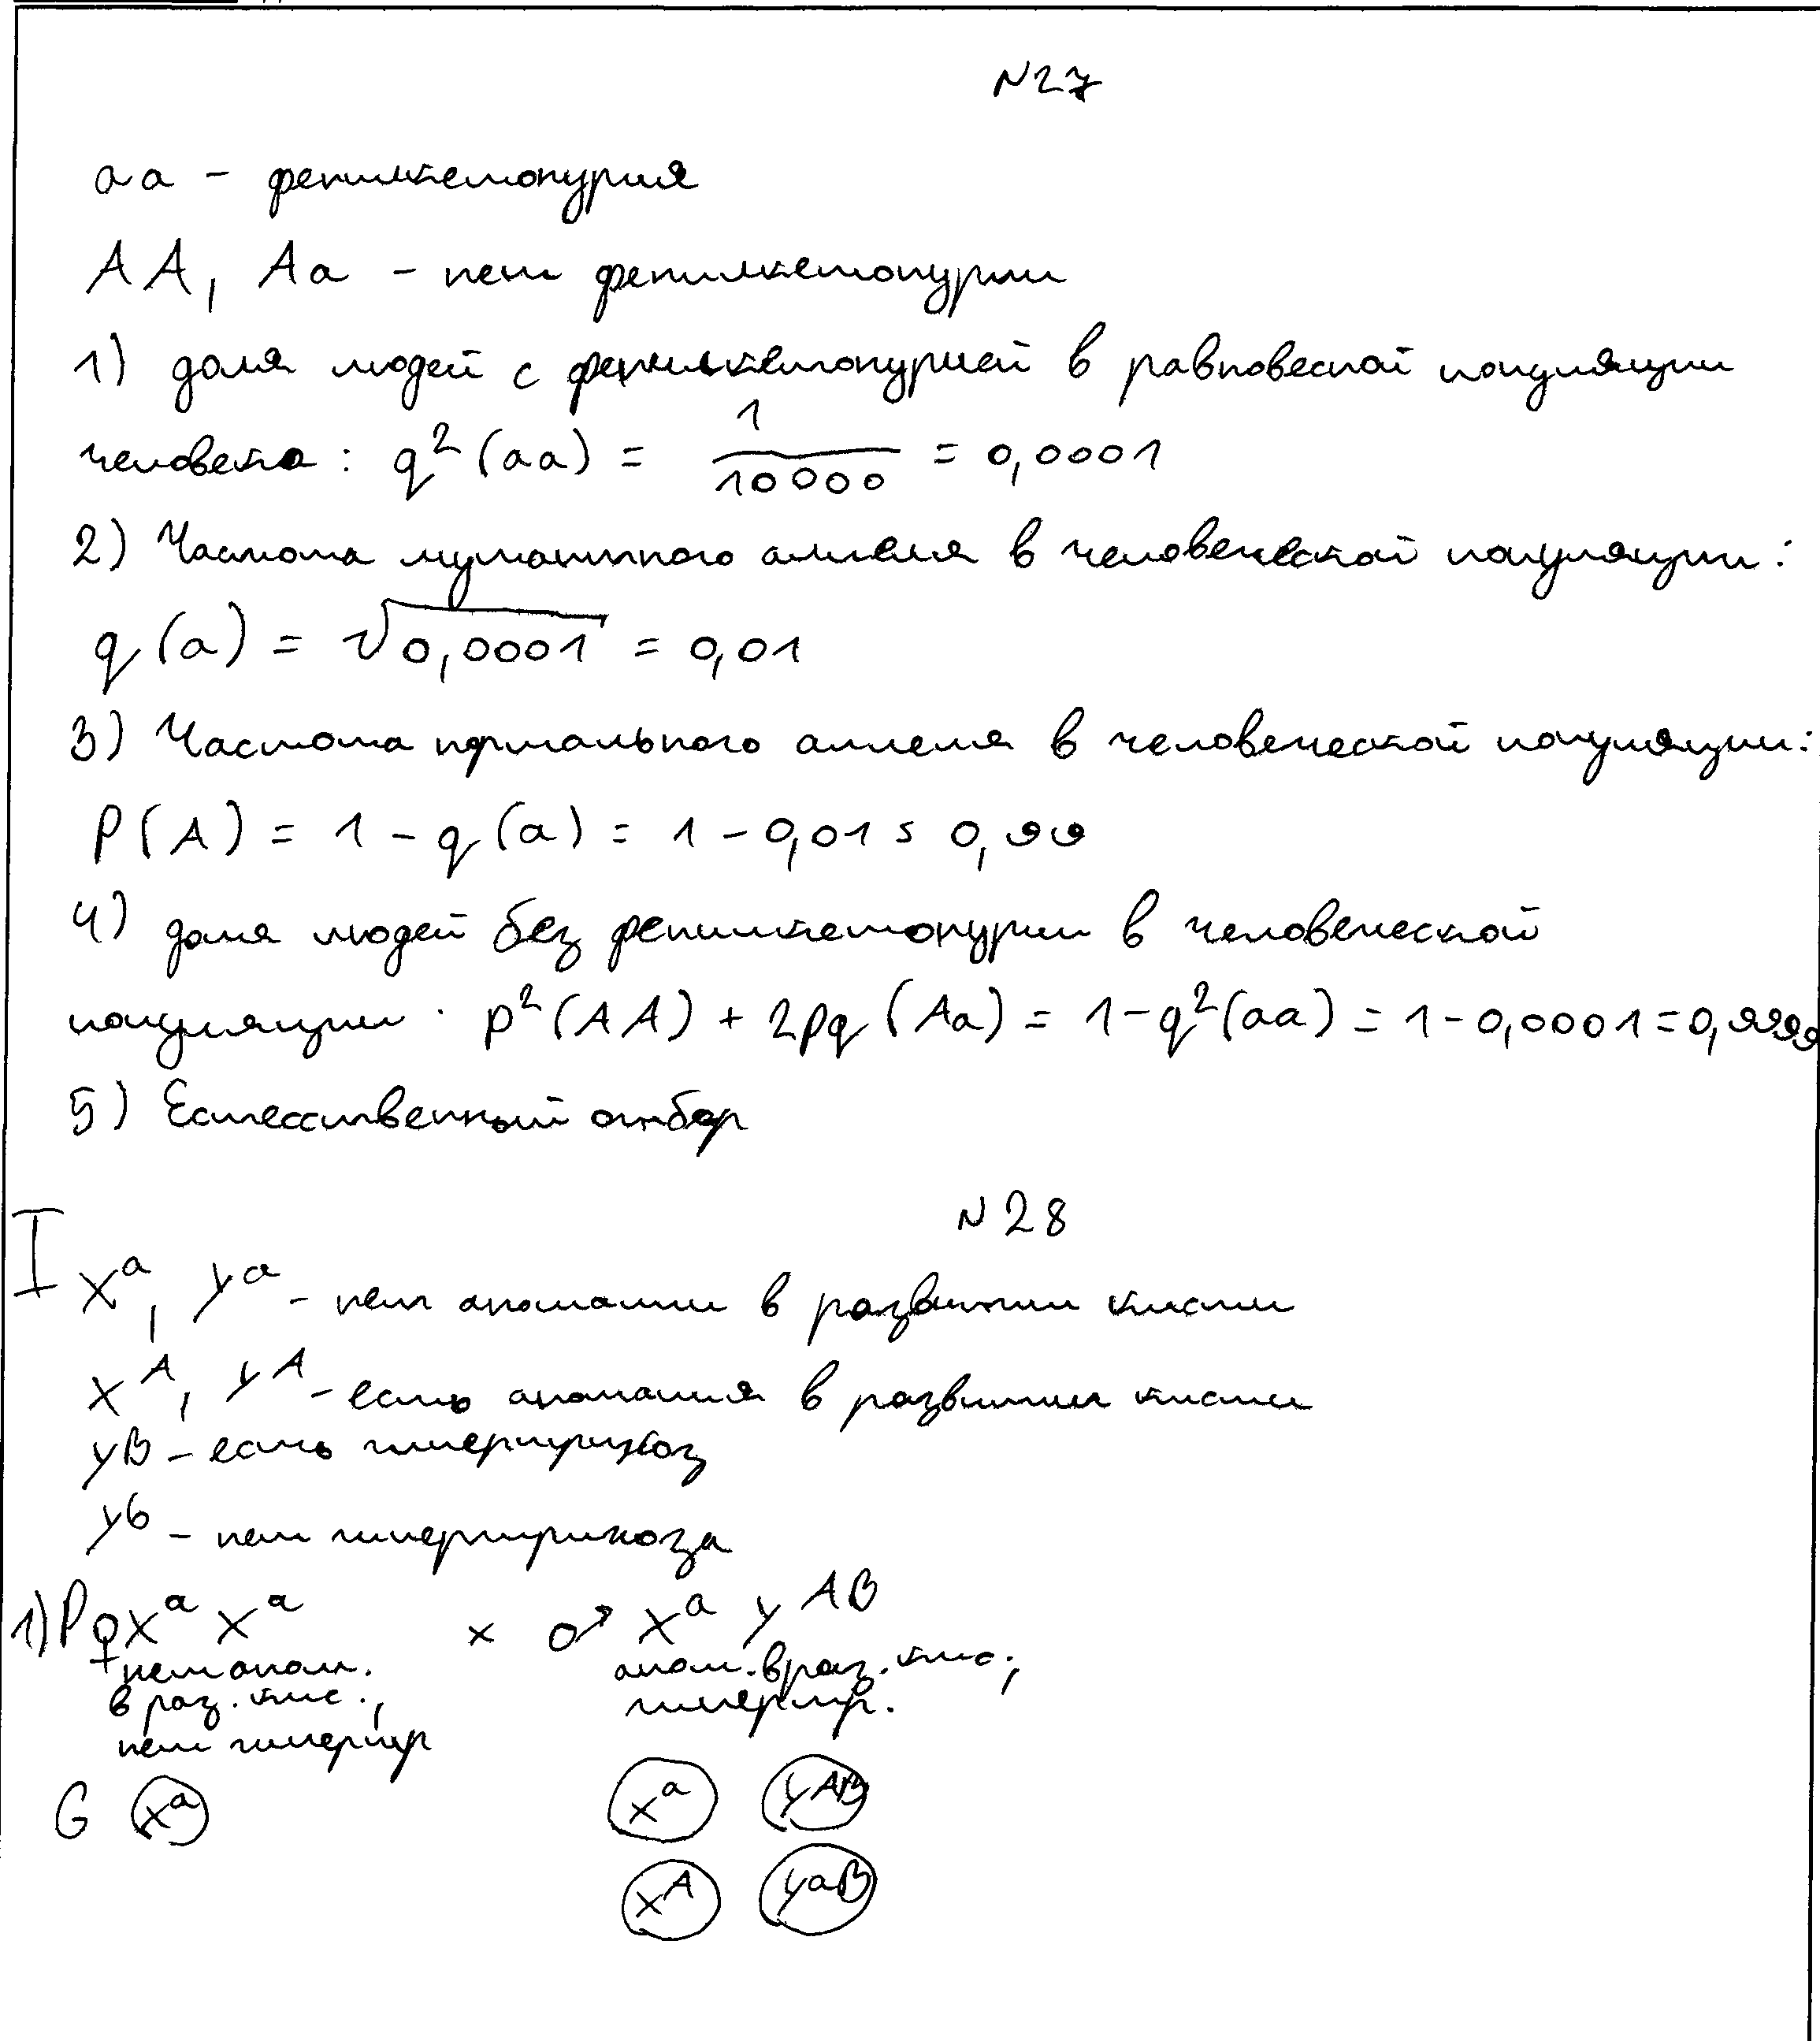 N27
aa – фенилкетонурия
AA, Aa – нет фенилкетонурии
1) доля людей с фенилкетонурией в равновесной популяции
человека: q²(aa) = 1/10000 = 0,0001
2) Частота мутантного аллеля в человеческой популяции:
q(a) = √0,0001 = 0,01
3) Частота нормального аллеля в человеческой популяции:
P(A) = 1 – q(a) = 1 – 0,01 = 0,99
4) доля людей без фенилкетонурии в человеческой
популяции: p²(AA) + 2pq(Aa) = 1 – q²(aa) = 1 – 0,0001 = 0,9999
5) Естесственный отбор
N 28
I Xᵃ, Yᵃ – нет аномалии в развитии кисти
Xᴬ, Yᴬ – есть аномалия в развитии кисти
Yᴮ – есть гипертрихоз
Yᵇ – нет гипертрихоза
1) P ♀ Xᵃ Xᵃ × ♂ Xᵃ Yᴬᴮ
нет аном. аном. в раз. кис.;
в раз. кис., гипертр.
нет гипертр
G Xᵃ Xᵃ Yᴬᴮ
Xᴬ Yᵃᴮ